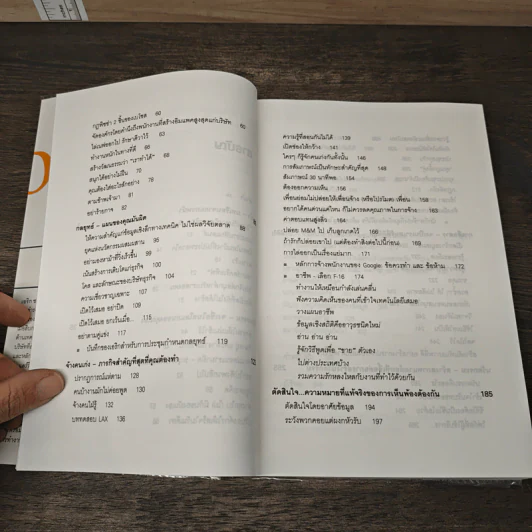 กฎพิซซ่า 2 ชิ้นของเบโซส 60
จัดองค์กรโดยคำนึงถึงพนักงานที่สร้างอิมแพคสูงสุดแก่บริษัท 60
ไล่เนฟออกไป รักษาดีวาไว้ 63
ทำงานหนักในทางที่ดี 66
สร้างวัฒนธรรมว่า "เราทำได้" 68
สนุกได้อย่างไม่ฝืน 70
คุณต้องใส่อะไรสักอย่าง 78
ตามข้าพเจ้ามา 81
อย่าร้ายกาจ 82
กลยุทธ์ - แผนของคุณมันผิด 86
ให้ความสำคัญแก่ข้อมูลเชิงลึกทางเทคนิค ไม่ใช่ผลวิจัยตลาด 88
ยุคแห่งนวัตกรรมผสมผสาน 95
อย่ามองหาม้าที่วิ่งเร็วขึ้น 99
เน้นสร้างการเติบโตแก่ธุรกิจ 100
โคส และลักษณะของบริษัทธุรกิจ 104
ความเชี่ยวชาญเฉพาะ 107
เปิดไว้เสมอ อย่าปิด 109
เปิดไว้เสมอ ยกเว้นเมื่อ... 115
อย่าตามคู่แข่ง 117
■ บันทึกของเอริกสำหรับการประชุมกำหนดกลยุทธ์ 119
จ้างคนเก่ง - ภารกิจสำคัญที่สุดที่คุณต้องทำ 121
ปรากฏการณ์แห่ตาม 128
คนบ้างานมักไม่ค่อยพูด 130
จ้างคนใฝ่รู้ 132
บททดสอบ LAX 136
ความรู้ที่สอนกันไม่ได้ 139
เปิดช่องให้กว้าง 141
ใครๆ ก็รู้จักคนเก่งกันทั้งนั้น 146
การสัมภาษณ์เป็นทักษะสำคัญที่สุด 148
สัมภาษณ์ 30 นาทีพอ 154
ต้องออกความเห็น 156
เพื่อนย่อมไม่ปล่อยให้เพื่อนจ้าง หรือโปรโมตเพื่อน 158
อยากได้คนด่วนแค่ไหน ก็ไม่ควรลดคุณภาพในการจ้าง 163
ค่าตอบแทนสูงลิ่ว 164
ปล่อย M&M ไป เก็บลูกเกดไว้ 166
ถ้ารักก็ปล่อยเขาไป (แต่ต้องทำสิ่งต่อไปนี้ก่อน) 169
การไล่ออกเป็นเรื่องแย่มาก 171
■ หลักการจ้างพนักงานของ Google: ข้อควรทำ และ ข้อห้าม 172
■ อาชีพ - เลือก F-16 174
ทำงานให้เหมือนกำลังเล่นคลื่น
ฟังความคิดเห็นของคนที่เข้าใจเทคโนโลยีเสมอ
วางแผนอาชีพ
ข้อมูลเชิงสถิติคืออาวุธชนิดใหม่
อ่าน อ่าน อ่าน
รู้จักวิธีพูดเพื่อ "ขาย" ตัวเอง
ไปต่างประเทศบ้าง
รวมความรักหลงใหลกับงานที่ทำไว้ด้วยกัน
ตัดสินใจ...ความหมายที่แท้จริงของการเห็นพ้องต้องกัน 185
ตัดสินใจโดยอาศัยข้อมูล 194
ระวังพวกคอยแต่ผงกหัวรับ 197